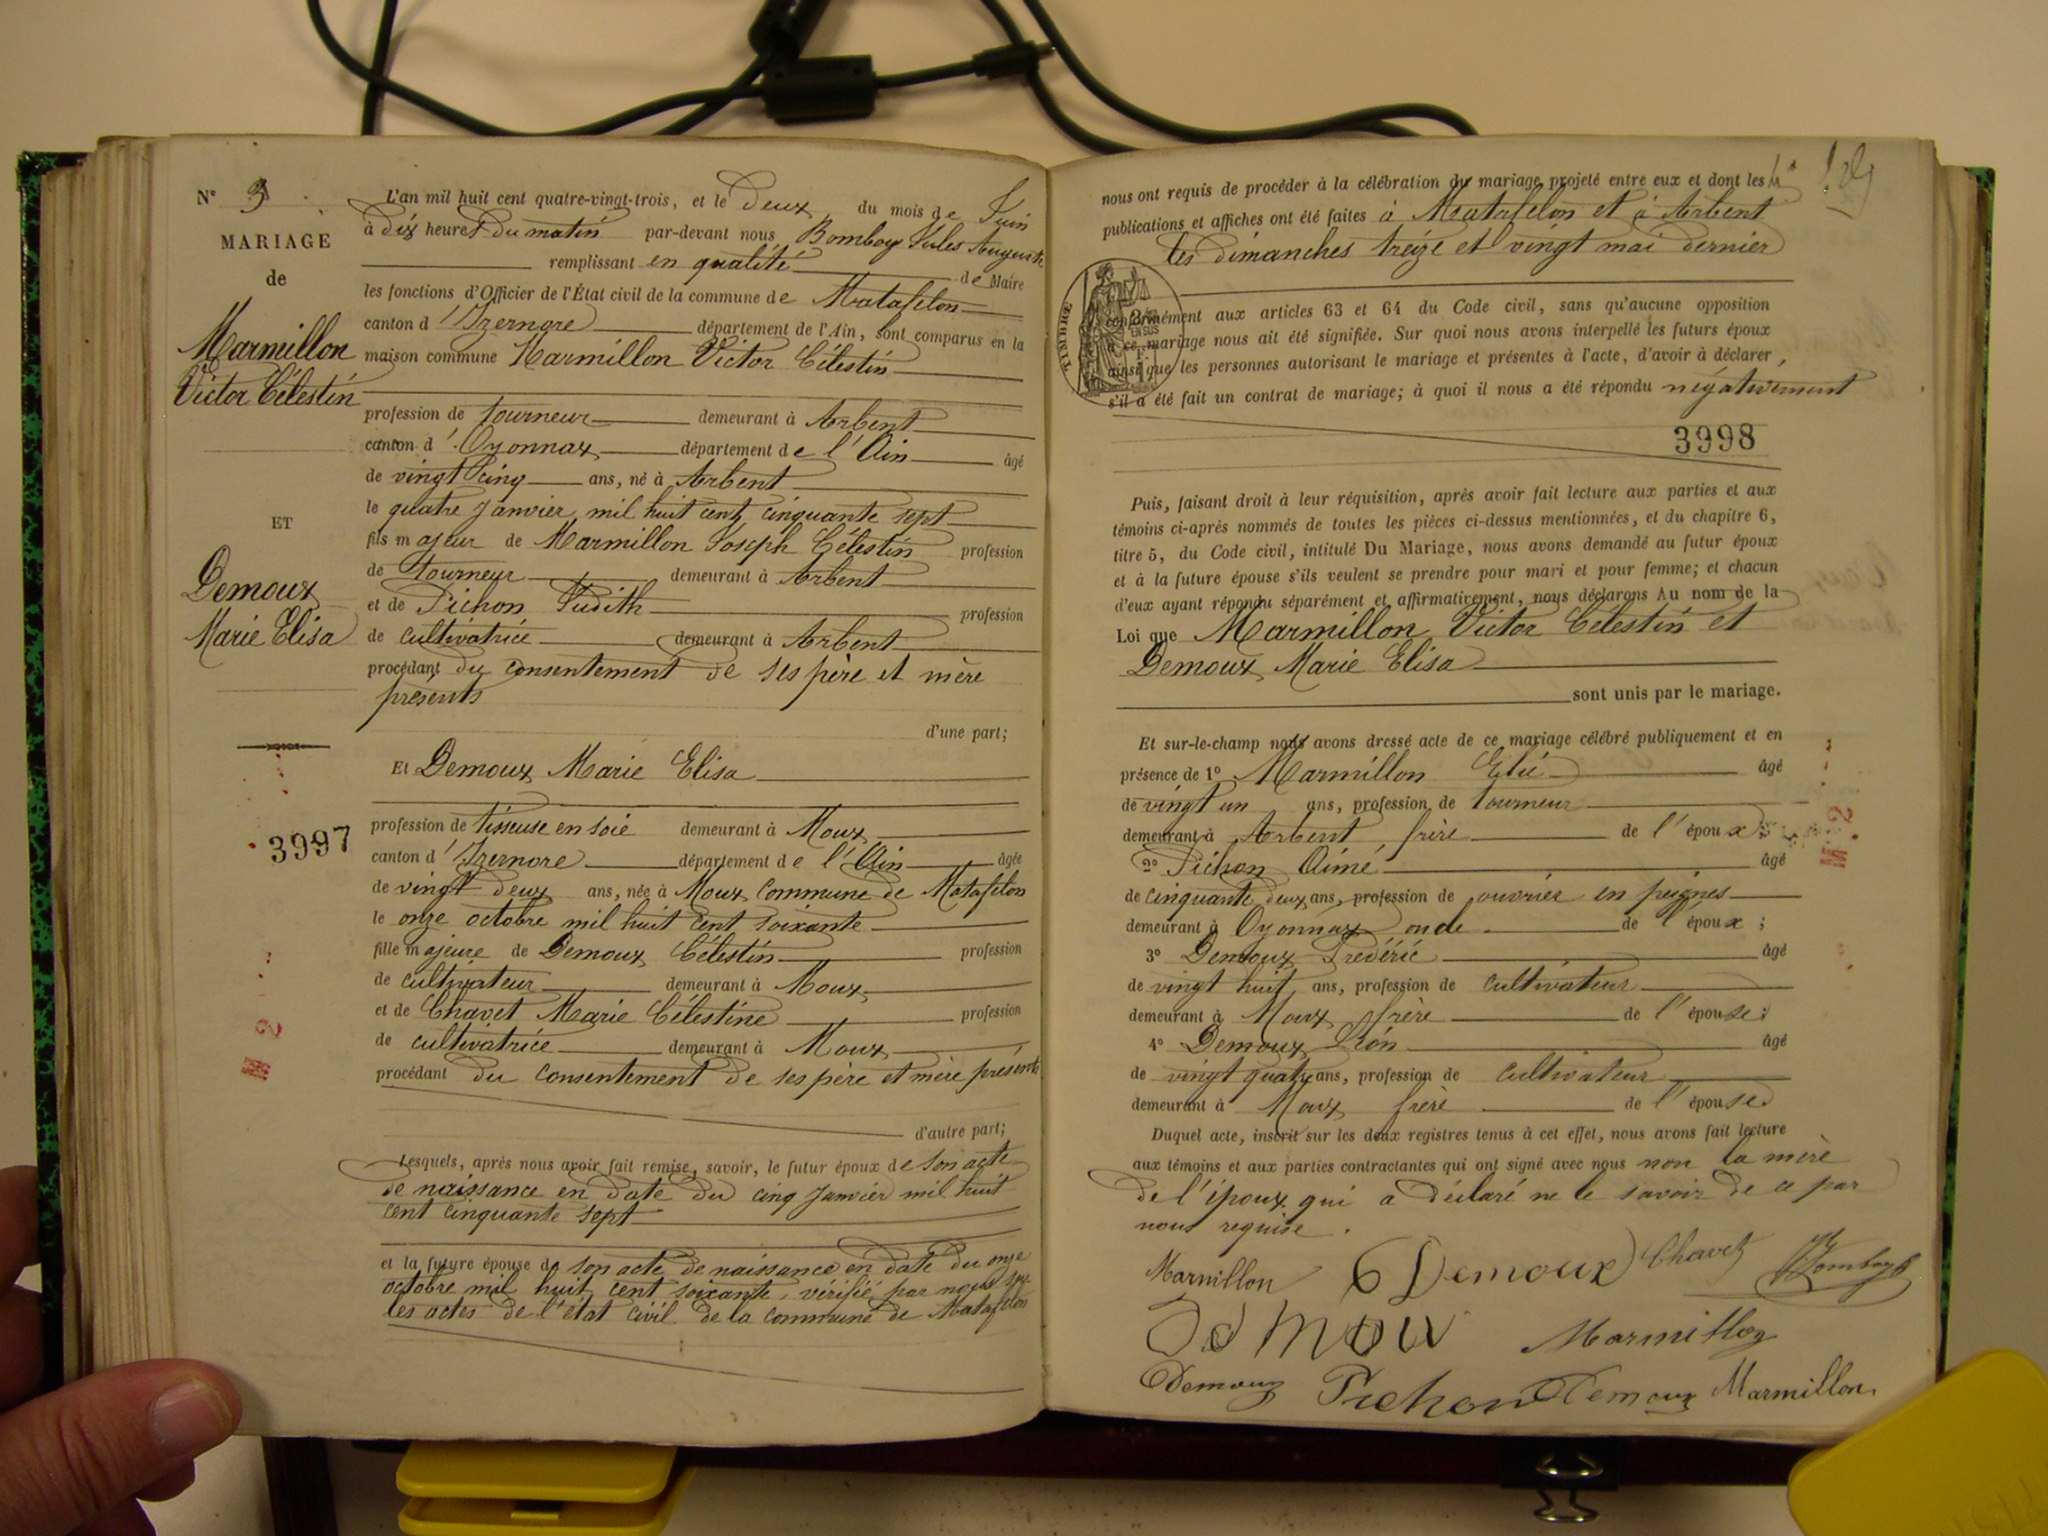 N° 3
MARIAGE
de
Marmillon
Victor Célestin
ET
Demoux
Marie Elisa
3997
M. 2
L'an mil huit cent quatre-vingt-trois, et le deux du mois de Juin
à dix heures du matin par-devant nous Bomboy Jules Auguste
remplissant en qualité de Maire
les fonctions d'Officier de l'État civil de la commune de Matafelon
canton d'Izernore département de l'Ain, sont comparus en la
maison commune Marmillon Victor Célestin
profession de tourneur demeurant à Arbent
canton d'Oyonnax département de l'Ain âgé
de vingt cinq ans, né à Arbent
le quatre janvier mil huit cent cinquante sept
fils majeur de Marmillon Joseph Célestin profession
de tourneur demeurant à Arbent
et de Pichon Judith profession
de cultivatrice demeurant à Arbent
procédant du consentement de ses père et mère
présents
d'une part;
Et Demoux Marie Elisa
profession de tisseuse en soie demeurant à Moux
canton d'Izernore département de l'Ain âgée
de vingt deux ans, née à Moux commune de Matafelon
le onze octobre mil huit cent soixante
fille majeure de Demoux Célestin profession
de cultivateur demeurant à Moux
et de Chavet Marie Célestine profession
de cultivatrice demeurant à Moux
procédant du consentement de ses père et mère présents
d'autre part;
Lesquels, après nous avoir fait remise, savoir, le futur époux de son acte
de naissance en date du cinq janvier mil huit
cent cinquante sept
et la future épouse de son acte de naissance en date du onze
octobre mil huit cent soixante, vérifié par nous sur
les actes de l'état civil de la commune de Matafelon
nous ont requis de procéder à la célébration du mariage projeté entre eux et dont les
publications et affiches ont été faites à Matafelon et à Arbent
les dimanches treize et vingt mai dernier
TIMBRE
conformément aux articles 63 et 64 du Code civil, sans qu'aucune opposition
à ce mariage nous ait été signifiée. Sur quoi nous avons interpellé les futurs époux
ainsi que les personnes autorisant le mariage et présentes à l'acte, d'avoir à déclarer,
s'il a été fait un contrat de mariage; à quoi il nous a été répondu négativement
3998
Puis, faisant droit à leur réquisition, après avoir fait lecture aux parties et aux
témoins ci-après nommés de toutes les pièces ci-dessus mentionnées, et du chapitre 6,
titre 5, du Code civil, intitulé Du Mariage, nous avons demandé au futur époux
et à la future épouse s'ils veulent se prendre pour mari et pour femme; et chacun
d'eux ayant répondu séparément et affirmativement, nous déclarons Au nom de la
Loi que Marmillon Victor Célestin et
Demoux Marie Elisa
sont unis par le mariage.
Et sur-le-champ nous avons dressé acte de ce mariage célébré publiquement et en
présence de 1° Marmillon Elie âgé
de vingt un ans, profession de tourneur
demeurant à Arbent frère de l'époux;
2° Pichon Aimé âgé
de cinquante deux ans, profession de ouvrier en peignes
demeurant à Oyonnax oncle de l'époux;
3° Demoux Frédéric âgé
de vingt huit ans, profession de cultivateur
demeurant à Moux frère de l'épouse;
4° Demoux Léon âgé
de vingt quatre ans, profession de cultivateur
demeurant à Moux frère de l'épouse
Duquel acte, inscrit sur les deux registres tenus à cet effet, nous avons fait lecture
aux témoins et aux parties contractantes qui ont signé avec nous non la mère
de l'époux qui a déclaré ne le savoir de ce par
nous requise.
M. 2
Marmillon Demoux Chavet Bomboy
Marmillon
Demoux Pichon Demoux Marmillon